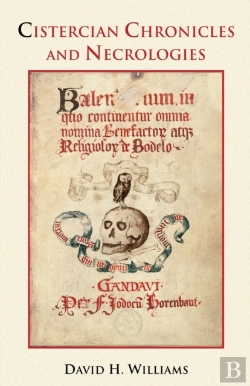 CISTERCIAN CHRONICLES
AND NECROLOGIES
in
quo continentur omnia
nomina Benefactor atq;
Religiosor de Bodelo
GANDAVI
Per F. Jodocū Horenbaut
DAVID H. WILLIAMS
B